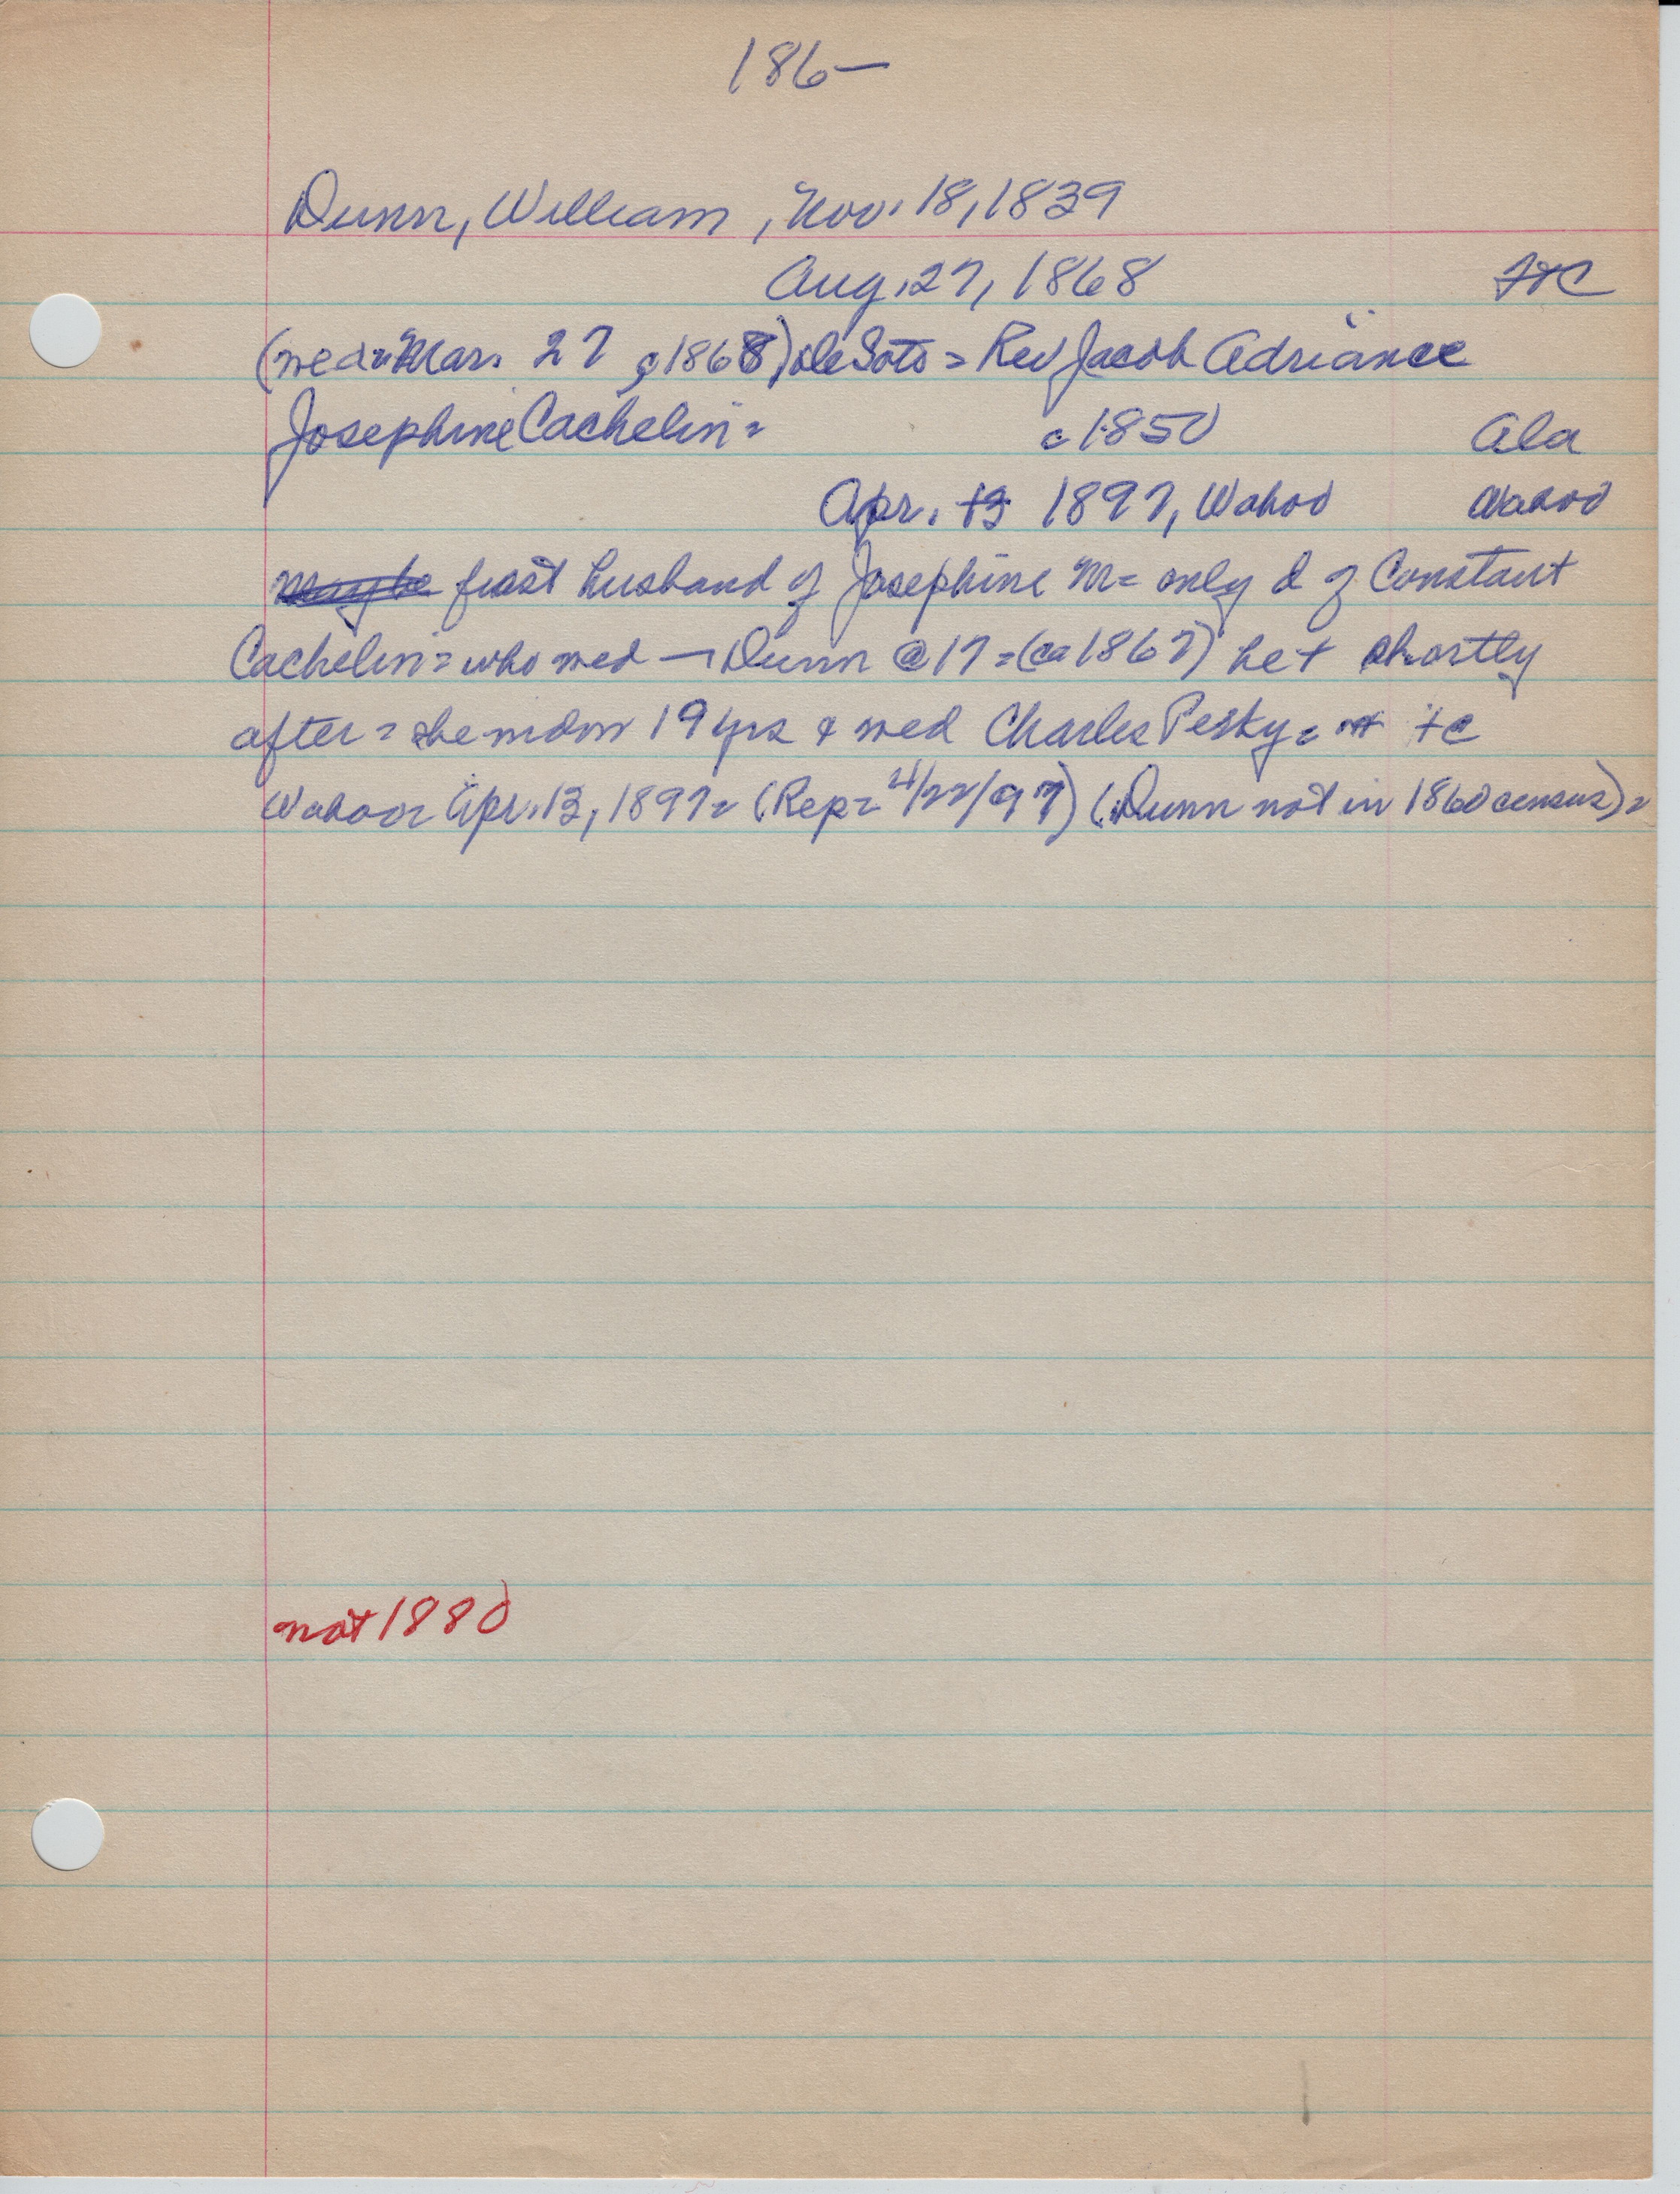 186-
Dunn, William, Nov. 18, 1839
Aug. 27, 1868 FtC
(med= Mar. 27, 1868) DeSoto = Rev Jacob Adriance
Josephine Cachelin = c 1850 Ala
Apr. 13 1897, Wahoo Wahoo
maybe first husband of Josephine M= only d of Constant
Cachelin = who med — Dunn @17 = (ca 1867) he + shortly
after = she mdow 19 yrs & med Charles Pesky = +@
Wahoo Apr. 13, 1897= (Rep= 4/22/97) (Dunn not in 1860 census)=
not 1880